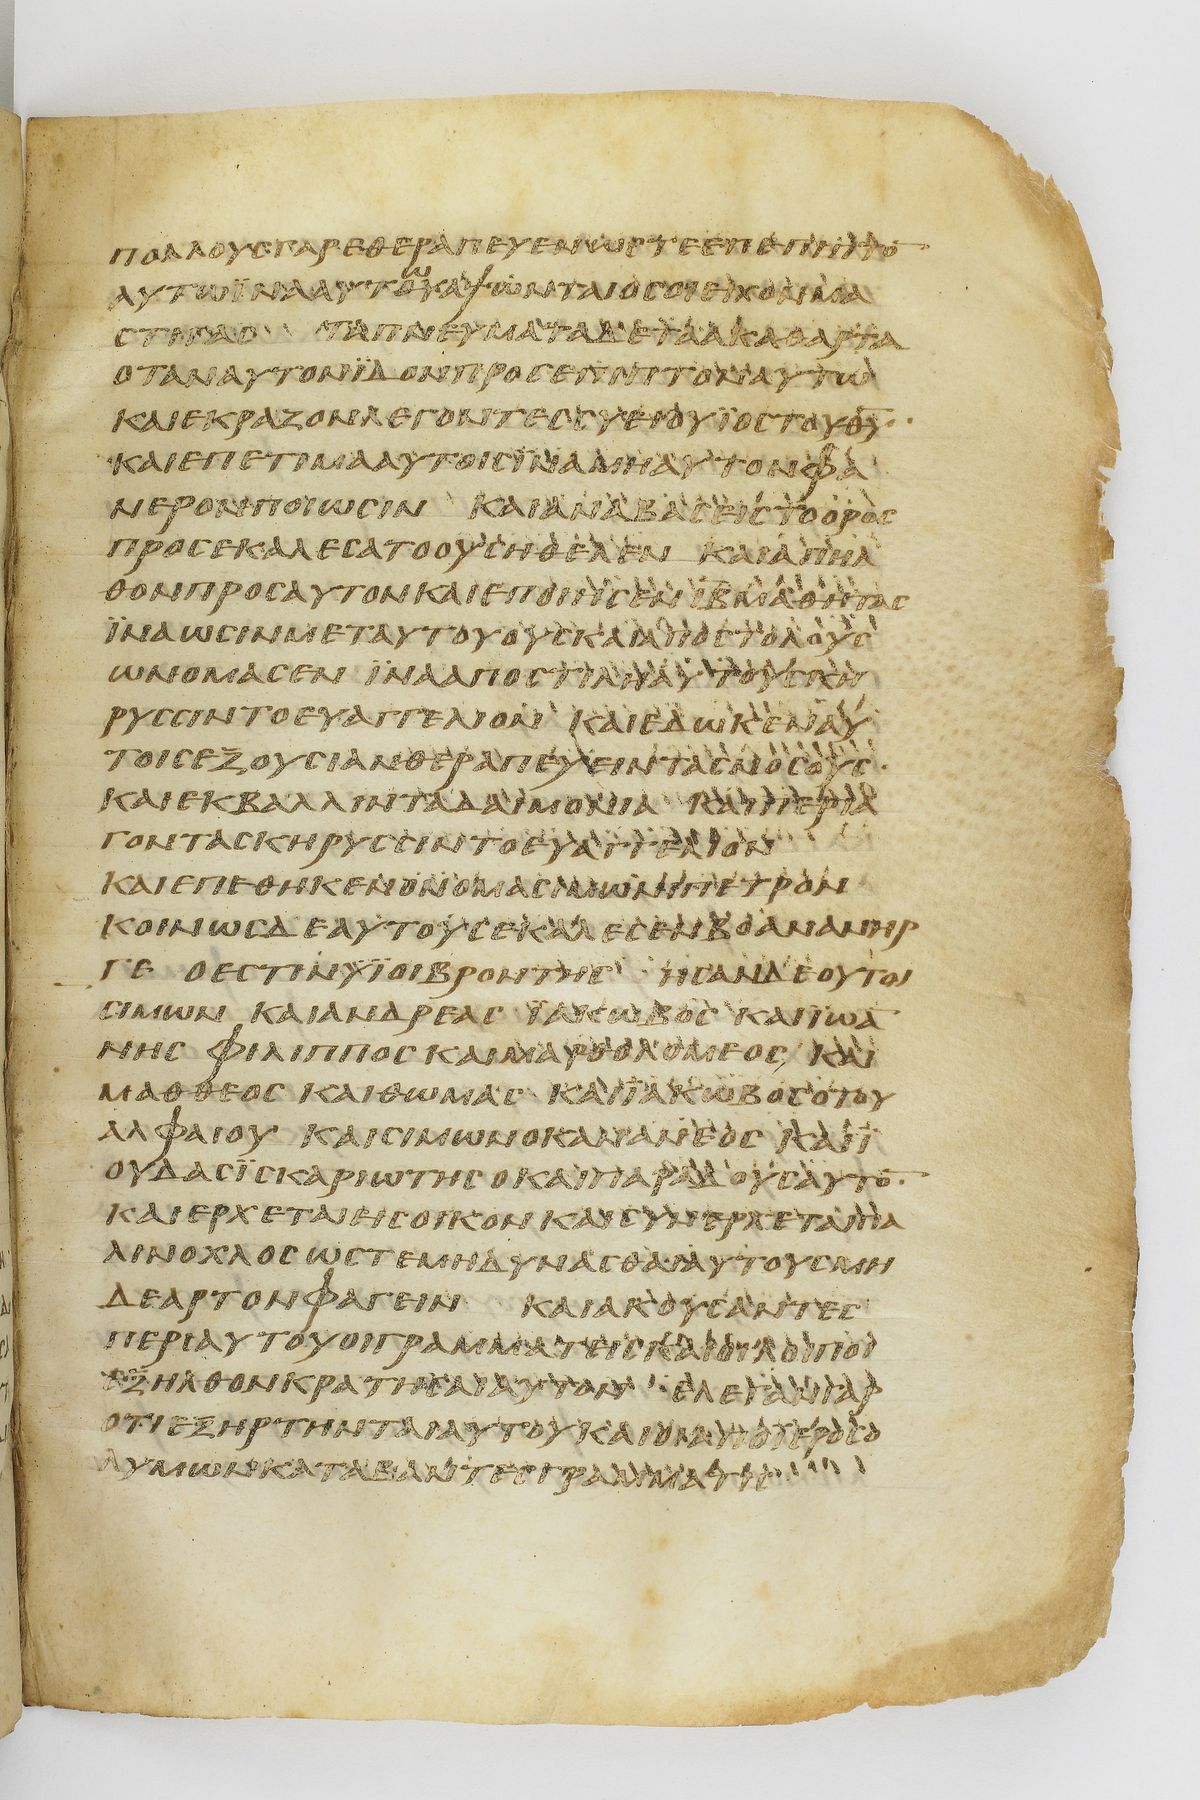 ΠΟΛΛΟΥΣΓΑΡΕΘΕΡΑΠΕΥΕΝΩΣΤΕΕΠΙΠΙΠΤΙ̅
ΑΥΤΩΪΝΑΑΥΤΟΥΑΨΩΝΤΑΙΟΣΟΙΕΙΧΟΝΜΑ
ΣΤΙΓΑΣ ΤΑΠΝΕΥΜΑΤΑΔΕΤΑΑΚΑΘΑΡΤΑ
ΟΤΑΝΑΥΤΟΝΪΔΟΝΠΡΟΣΕΠΙΠΤΟΝΑΥΤΩ
ΚΑΙΕΚΡΑΖΟΝΛΕΓΟΝΤΕΣΣΥΕΙΟΥΪΟΣΤΟΥΘ̅Υ̅·
ΚΑΙΕΠΕΤΙΜΑΑΥΤΟΙΣΪΝΑΜΗΑΥΤΟΝΦΑ
ΝΕΡΟΝΠΟΙΩΣΙΝ ΚΑΙΑΝΑΒΑΣΕΙΣΤΟΟΡΟΣ
ΠΡΟΣΕΚΑΛΕΣΑΤΟΟΥΣΗΘΕΛΕΝ ΚΑΙΑΠΗΛ
ΘΟΝΠΡΟΣΑΥΤΟΝΚΑΙΕΠΟΙΗΣΕΝΙ̅Β̅ΜΑΘΗΤΑΣ
ΪΝΑΩΣΙΝΜΕΤΑΥΤΟΥΟΥΣΚΑΙΑΠΟΣΤΟΛΟΥΣ
ΩΝΟΜΑΣΕΝ ΪΝΑΑΠΟΣΤΙΛΗΑΥΤΟΥΣΚΗ
ΡΥΣΣΙΝΤΟΕΥΑΓΓΕΛΙΟΝ ΚΑΙΕΔΩΚΕΝΑΥ
ΤΟΙΣΕΞΟΥΣΙΑΝΘΕΡΑΠΕΥΕΙΝΤΑΣΝΟΣΟΥΣ·
ΚΑΙΕΚΒΑΛΛΙΝΤΑΔΑΙΜΟΝΙΑ ΚΑΙΠΕΡΙΑ
ΓΟΝΤΑΣΚΗΡΥΣΣΙΝΤΟΕΥΑΓΓΕΛΙΟΝ
ΚΑΙΕΠΕΘΗΚΕΝΟΝΟΜΑΣΙΜΩΝΙΠΕΤΡΟΝ
ΚΟΙΝΩΣΔΕΑΥΤΟΥΣΕΚΑΛΕΣΕΝΒΟΑΝΑΝΗΡ
ΓΕ ΟΕΣΤΙΝΥΪΟΙΒΡΟΝΤΗΣ ΗΣΑΝΔΕΟΥΤΟΙ
ΣΙΜΩΝ ΚΑΙΑΝΔΡΕΑΣ ΪΑΚΩΒΟΣ ΚΑΙΪΩΑ
ΝΗΣ ΦΙΛΙΠΠΟΣΚΑΙΜΑΡΘΟΛΟΜΕΟΣ ΚΑΙ
ΜΑΘΘΕΟΣ ΚΑΙΘΩΜΑΣ ΚΑΙΪΑΚΩΒΟΣΟΤΟΥ
ΑΛΦΑΙΟΥ ΚΑΙΣΙΜΩΝΟΚΑΝΑΝΕΟΣ ΚΑΙΪ
ΟΥΔΑΣΪΣΚΑΡΙΩΤΗΣΟΚΑΙΠΑΡΑΔΟΥΣΑΥΤΟ̅·
ΚΑΙΕΡΧΕΤΑΙΕΙΣΟΙΚΟΝΚΑΙΣΥΝΕΡΧΕΤΑΙΠΑ
ΛΙΝΟΧΛΟΣΩΣΤΕΜΗΔΥΝΑΣΘΑΙΑΥΤΟΥΣΜΗ
ΔΕΑΡΤΟΝΦΑΓΕΙΝ ΚΑΙΑΚΟΥΣΑΝΤΕΣ
ΠΕΡΙΑΥΤΟΥΟΙΓΡΑΜΜΑΤΕΙΣΚΑΙΟΙΛΟΙΠΟΙ
ΕΞΗΛΘΟΝΚΡΑΤΗΣΑΙΑΥΤΟΝ ΕΛΕΓΑΝΓΑΡ
ΟΤΙΕΞΗΡΤΗΝΤΑΙΑΥΤΟΥΚΑΙΟΙΑΠΟΪΕΡΟΣΟ
ΛΥΜΩΝΚΑΤΑΒΑΝΤΕΣΓΡΑΜΜΑΤΙΣ